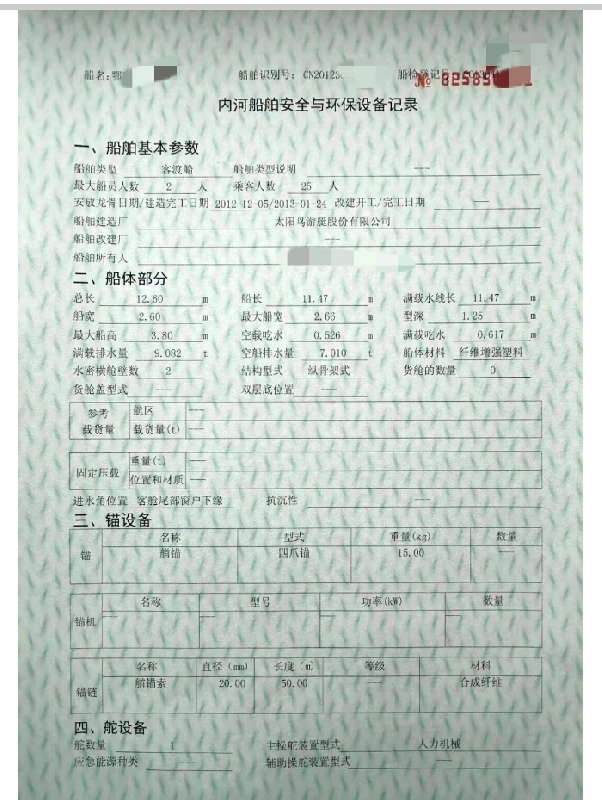 船名：鄂 船舶识别号：CN20123 船检登记号
№ 82585
内河船舶安全与环保设备记录
一、船舶基本参数
船舶类型 客渡船 船舶类型说明 ——
最大船员人数 2 人 乘客人数 25 人
安放龙骨日期/建造完工日期 2012-12-05/2013-01-24 改建开工/完工日期 ——
船舶建造厂 太阳鸟游艇股份有限公司
船舶改建厂 ——
船舶所有人
二、船体部分
总长 12.80 m 船长 11.47 m 满载水线长 11.47 m
船宽 2.60 m 最大船宽 2.66 m 型深 1.25 m
最大船高 3.80 m 空载吃水 0.526 m 满载吃水 0.617 m
满载排水量 9.082 t 空船排水量 7.010 t 船体材料 纤维增强塑料
水密横舱壁数 2 结构型式 纵骨架式 货舱的数量 0
货舱盖型式 —— 双层底位置 ——
参考载货量 航区 ——
载货量(t) ——
固定压载 重量(t) ——
位置和材质 ——
进水角位置 客舱尾部窗户下缘 抗沉性 ——
三、锚设备
锚 名称 型式 重量(kg) 数量
艏锚 四爪锚 15.00 ——
锚机 名称 型号 功率(kW) 数量
—— —— —— ——
锚链 名称 直径(mm) 长度(m) 等级 材料
艏锚索 20.00 50.00 —— 合成纤维
四、舵设备
舵数量 1 主操舵装置型式 人力机械
应急能源种类 —— 辅助操舵装置型式 ——